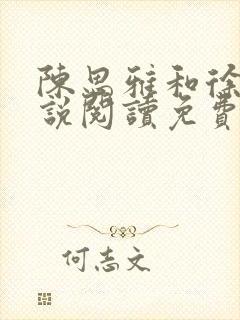 陳思雅和徐
說閱讀免費
何志文